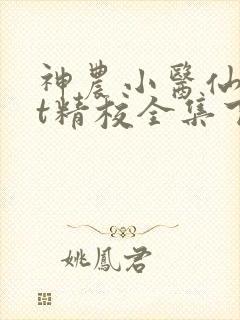 神農小醫仙
t精校全集下
姚鳳君